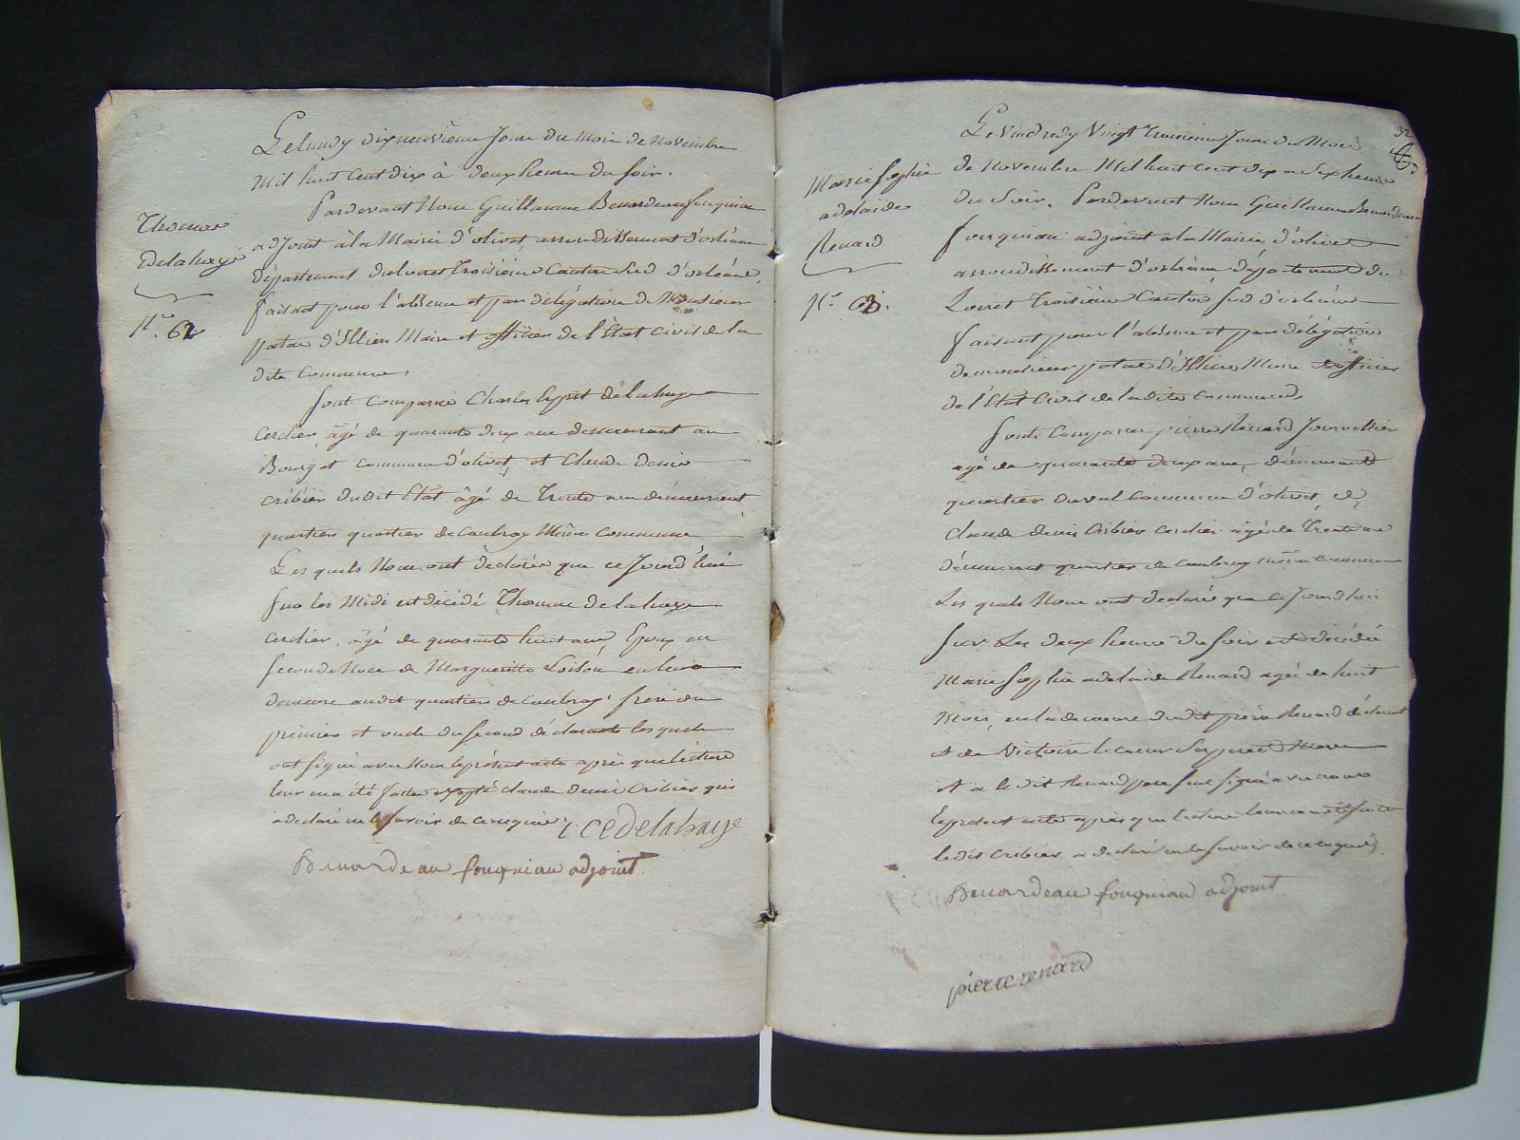 Thomas
Delahaye
N.° 62
Le lundy dixneuvieme Jour du mois de Novembre
Mil huit Cent dix à deux heures du soir.
Pardevant Nous Guillaume Benardeau fouquiau
adjoint à la Mairie d'olivet, arrondissement d'orléans
département du loiret troisième Canton Sud d'orléans,
faisant pour l'absence et par délégation de Monsieur
patas d'Illiers Maire et officier de l'Etat Civil de la
dite Commune,
sont comparus Charles Esprit delahaye
cerclier, âgé de quarante deux ans demeurant au
Bourg et commune d'olivet, et Claude denis
cribier dudit Etat âgé de Trente ans demeurant
quartier quartier de Caubray Même commune
Les quels Nous ont déclarés que ce Jourd'hui
sur les Midi est décédé Thomas delahaye
cerclier, âgé de quarante huit ans, Epoux en
seconde Noce de Margueritte Loison, en sa
demeure audit quartier de Caubray, frere du
premier et oncle du second déclarants lesquels
ont signé avec Nous le présent acte après que lecture
leur en a été faite excepté Claude Denis Cribier qui
a déclaré ne le savoir de ce requis
C E Delahaye
Benardeau fouquiau adjoint
32
Marie Sophie
adelaide
Renard
N.° 63.
Le Vendredy Vingt troisieme Jour du Mois
de Novembre Mil huit cent dix a six heures
du Soir, Pardevant Nous Guillaume Benardeau
fouquiau adjoint a la Mairie d'olivet
arrondissement d'orléans département du
Loiret troisième Canton sud d'orléans
faisant pour l'absence et par délégation
de monsieur patas d'Illiers Maire et officier
de l'Etat Civil de la dite Commune
sont Comparus pierre Renard Journallier
agé de quarante deux ans, demeurant
quartier du val Commune d'olivet, et
claude denis Cribier cerclier agé de Trente ans
demeurant quartier de Caubray même Commune
Les quels Nous ont declarés que ce Jourd'hui
sur les deux heures du soir est décédée
Marie Sophie adelaide Renard agée de huit
Mois, en la demeure dudit pierre Renard déclarant
et de Victoire le coeur Ses pere et Mere
et a le dit Renard pere signé avec nous
le présent acte après que lecture leur en a été faite
le dit Cribier a déclaré ne le savoir de ce requis
Benardeau fouquiau adjoint
pierre renard